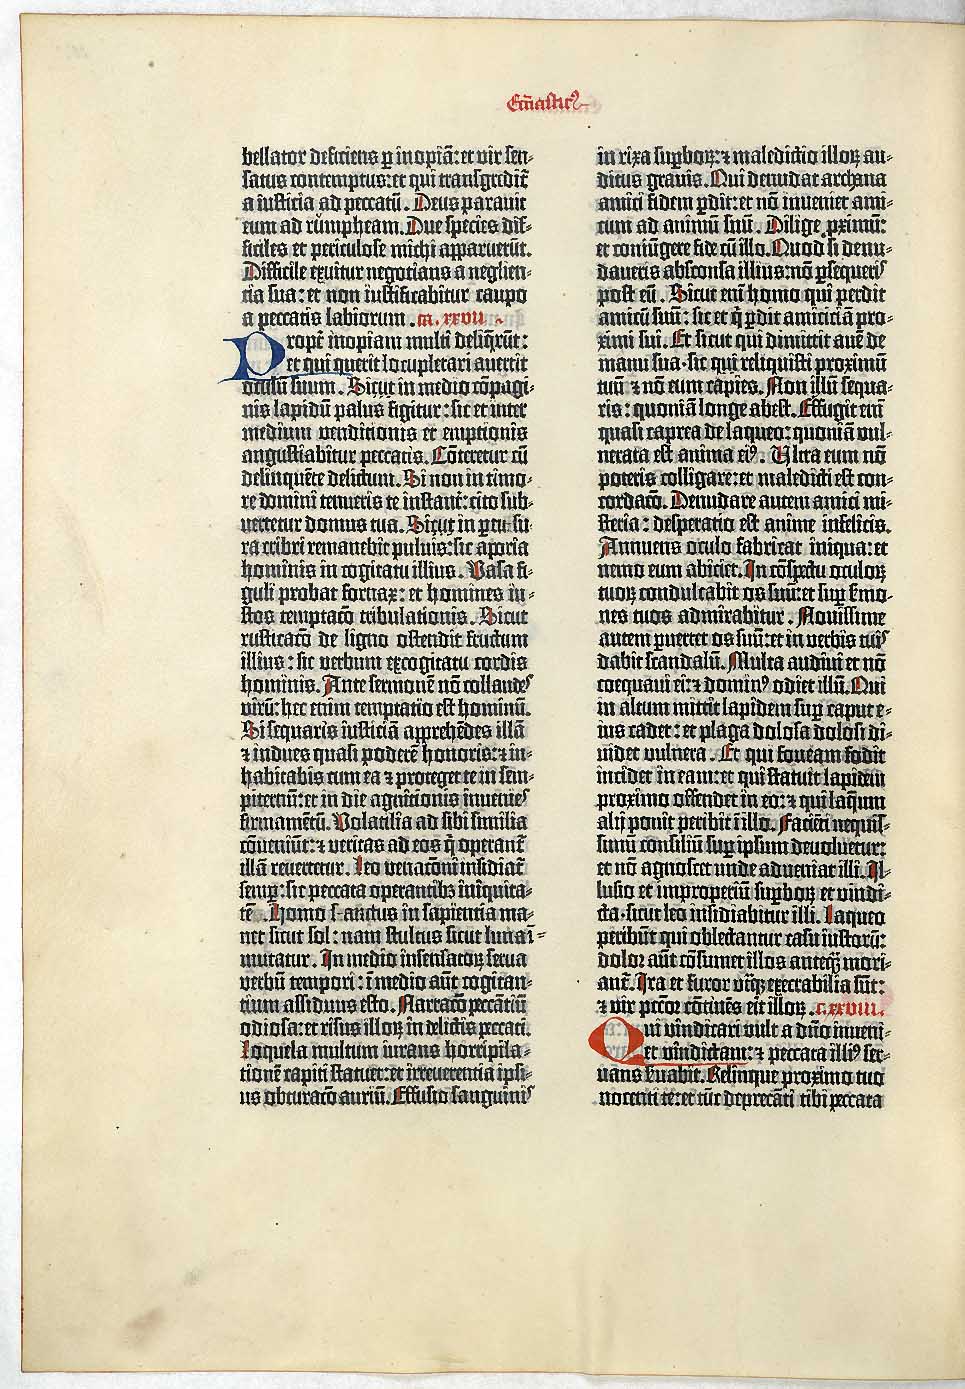 Ecc̄iasticꝰ
bellator deficiens ꝑ inopiā: et vir sen-
satus contemptus: et qui transgredit̄
a iusticia ad peccatū. Deus paravit
eum ad rumpheam. Due species dif-
ficiles et periculose michi apparuerūt.
Difficile exuitur negotians a neglien-
tia sua: et non iustificabitur caupo
a peccatis labiorum. ca. xxvii
Propt̄ inopiam multi deliq̄rūt:
et qui querit locupletari avertit
oculū suum. Sicut in medio cōpagi-
nis lapidū palus figitur: sic et inter
medium venditionis et emptionis
angustiabitur peccatis. Cōteretur cū
delinquēte delictum. Si non in timo-
re domini tenueris te instant̄: cito sub-
vertetur domus tua. Sicut in ꝑcussu-
ra cribri remanebit pulvis: sic aporia
hominis in cogitatu illius. Vasa fi-
guli probat fornax: et homines iu-
stos temptacō tribulationis. Sicut
rusticacō de ligno ostendit fructum
illius: sic verbum excogitatu cordis
hominis. Ante sermonē nō collaudeˢ
virū: hec enim temptatio est hominū.
Si sequaris iusticiā apprehēdes illā
⁊ indues quasi poderē honoris: ⁊ in-
habitabis cum ea ⁊ proteget te in sem-
piternū: et in die agnitionis invenieˢ
firmamētū. Volatilia ad sibi similia
cōveniūt: ⁊ veritas ad eos q̄ operant̄
illā revertetur. Leo venatōni insidiat̄
semꝑ: sic peccata operantibꝫ iniquita-
tē. Homo sanctus in sapientia ma-
net sicut sol: nam stultus sicut luna ī-
mutatur. In medio insensatoꝝ serva
verbū tempori: ī medio aūt cogitan-
tium assiduus esto. Narracō peccātiū
odiosa: et risus illoꝝ in delictis peccati.
Loquela multum iurans horripila-
tionē capiti statuet: et irreverentia ipsi-
us obturacō auriū. Effusio sanguiniˢ
in rixa suꝑboꝝ: ⁊ maledictio illoꝝ au-
ditus gravis. Qui denudat archana
amici fidem ꝑdit: et nō inveniet ami-
cum ad animū suū. Dilige ꝓximū:
et coniūgere fide cū illo. Quod si denu-
daveris absconsa illius: nō ꝑsequeriˢ
post eū. Sicut eni̅ homo qui perdit
amicū suū: sic et q̄ ꝑdit amiciciā pro-
ximi sui. Et sicut qui dimittit avē de
manu sua· sic qui reliquisti proximū
tuū ⁊ nō eum capies. Non illū sequa-
ris: quoniā longe abest. Effugit eni̅
quasi caprea de laqueo: quoniā vul-
nerata est anima eiꝰ. Ultra eum nō
poteris colligare: et maledicti est con-
cordacō. Denudare autem amici mi-
steria: desperatio est anime infelicis.
Annuens oculo fabricat iniqua: et
nemo eum abiciet. In cōspectu oculoꝝ
tuoꝝ condulcabit os suū: et suꝑ s̄mo-
nes tuos admirabitur. Novissime
autem ꝑvertet os suū: et in verbis tuiˢ
dabit scandalū. Multa audivi et nō
coequavi ei: ⁊ dominꝰ odiet illū. Qui
in altum mittit lapidem suꝑ caput e-
ius cadet: et plaga dolosa dolosi di-
videt vulnera. Et qui foveam fodit
incidet in eam: et qui statuit lapidem
proximo offendet in eo: ⁊ qui laq̄um
alij ponit peribit ī illo. Faciēti nequis-
simū consiliū suꝑ ipsum devolvetur:
et nō agnoscet unde adveniat illi. Il-
lusio et improperiū suꝑboꝝ et vindi-
cta· sicut leo insidiabitur illi. Laqueo
peribūt qui oblectantur casu iustorū:
dolor aūt cōsumet illos anteqꝫ mori-
ant̄. Ira et furor utr̄qꝫ execrabilia sūt:
⁊ vir pccōr cōtinēs erit illoꝝ. c. xxviii.
Qui vindicari vult a dn̄o inveni-
et vindictam: ⁊ peccata illiꝰ ser-
vans s̄vabit. Relinque proximo tuo
nocenti te: et tūc deprecāti tibi peccata